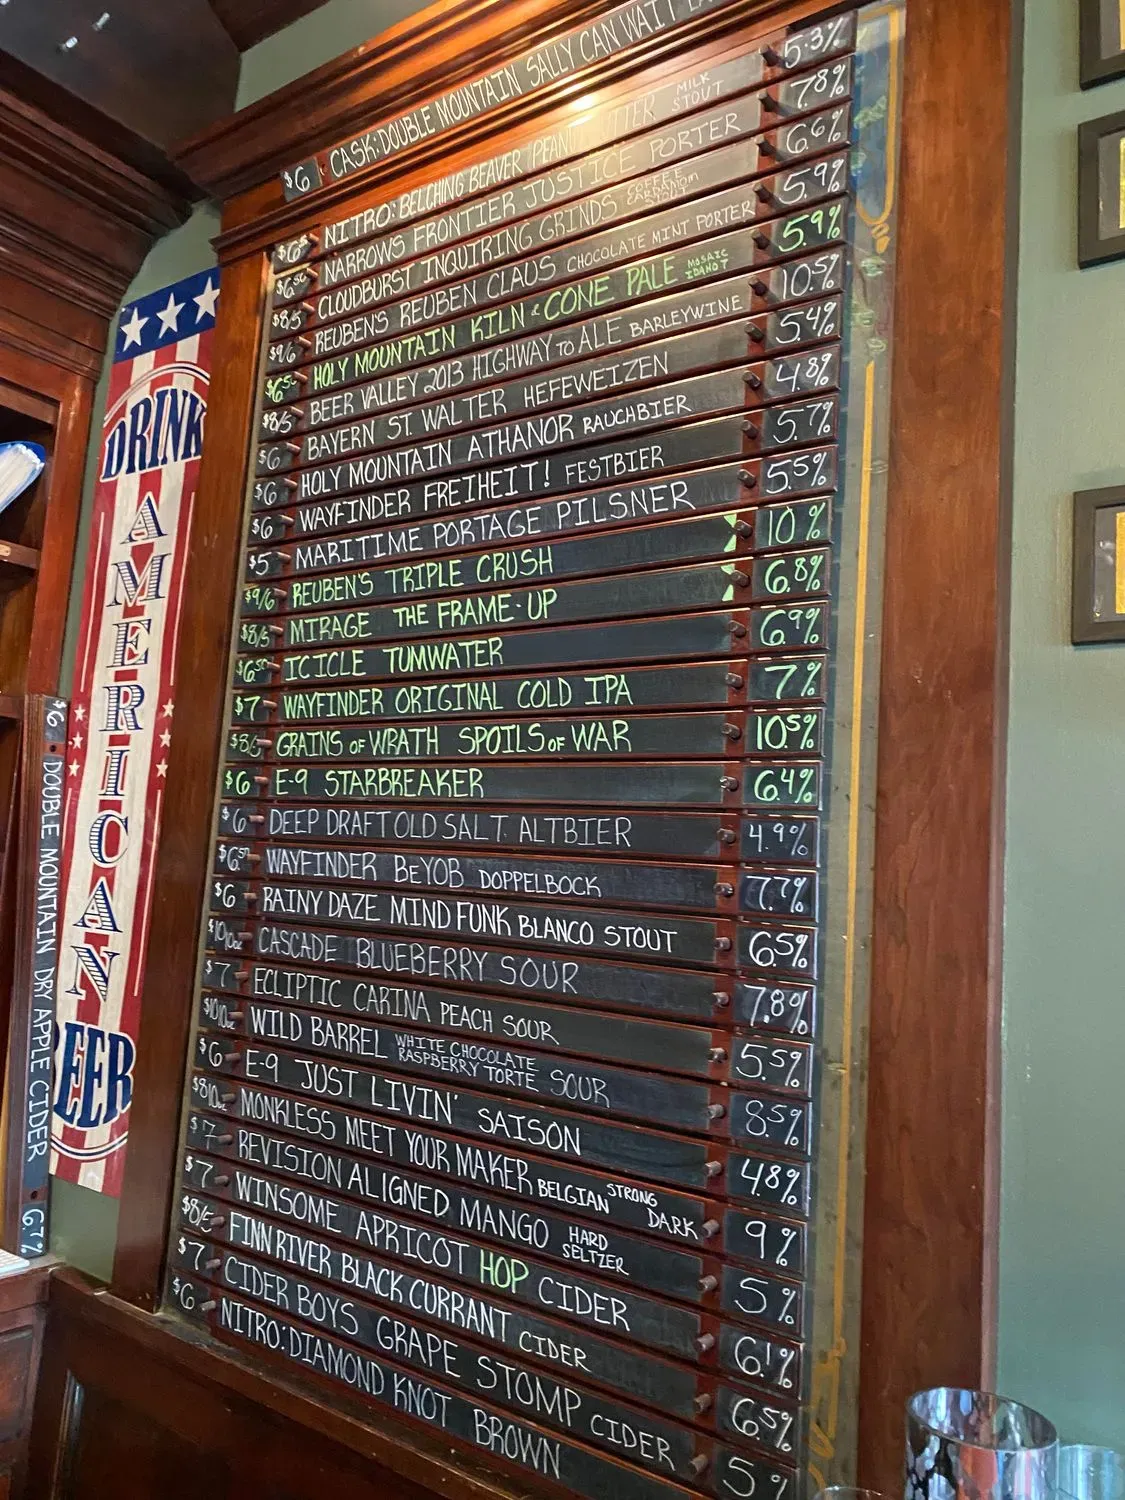 $6 CASK: DOUBLE MOUNTAIN SALLY CAN WAIT
$6⁵⁰ NITRO: BELCHING BEAVER PEANUT BUTTER MILK STOUT 5.3%
$6⁵⁰ NARROWS FRONTIER JUSTICE PORTER 7.8%
$8/5 CLOUDBURST INQUIRING GRINDS COFFEE CARDAMOM STOUT 6.6%
$9/6 REUBEN'S REUBEN CLAUS CHOCOLATE MINT PORTER 5.9%
$6⁵⁰ HOLY MOUNTAIN KILN & CONE PALE MOSAIC IDAHO 7 5.9%
$8/5 BEER VALLEY 2013 HIGHWAY TO ALE BARLEYWINE 10.5%
$6 BAYERN ST. WALTER HEFEWEIZEN 5.4%
$6 HOLY MOUNTAIN ATHANOR RAUCHBIER 4.8%
$6 WAYFINDER FREIHEIT! FESTBIER 5.7%
$5 MARITIME PORTAGE PILSNER 5.5%
$9/6 REUBEN'S TRIPLE CRUSH 10%
$8/5 MIRAGE THE FRAME-UP 6.8%
$6⁵⁰ ICICLE TUMWATER 6.9%
$7 WAYFINDER ORIGINAL COLD IPA 7%
$8/5 GRAINS OF WRATH SPOILS OF WAR 10.5%
$6 E-9 STARBREAKER 6.4%
$6 DEEP DRAFT OLD SALT ALTBIER 4.9%
$6⁵⁰ WAYFINDER BEYOB DOPPELBOCK 7.7%
$6 RAINY DAZE MIND FUNK BLANCO STOUT 6.5%
$10 10oz CASCADE BLUEBERRY SOUR 7.8%
$7 ECLIPTIC CARINA PEACH SOUR 5.5%
$10 10oz WILD BARREL WHITE CHOCOLATE RASPBERRY TORTE SOUR 8.5%
$6 E-9 JUST LIVIN' SAISON 4.8%
$8 10oz MONKLESS MEET YOUR MAKER BELGIAN STRONG DARK 9%
$7 REVISION ALIGNED MANGO HARD SELTZER 5%
$7 WINSOME APRICOT HOP CIDER 6.1%
$8/5 FINN RIVER BLACK CURRANT CIDER 6.5%
$7 CIDER BOYS GRAPE STOMP CIDER 5%
$6 NITRO: DIAMOND KNOT BROWN
DRINK
AMERICAN
BEER
$6 DOUBLE MOUNTAIN DRY APPLE CIDER 6.7%